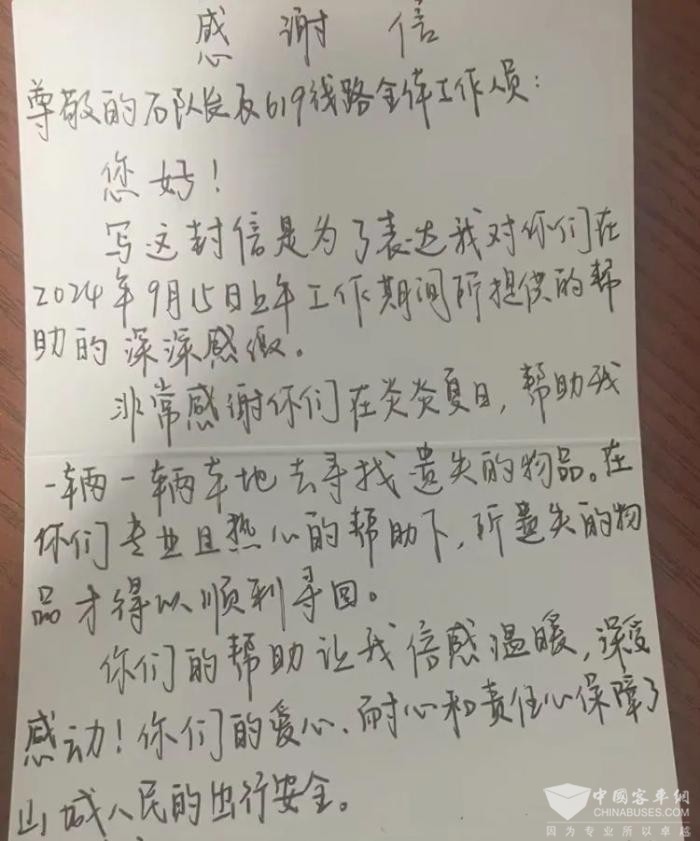 感谢信
尊敬的石队长及619线路全体工作人员：
您好！
写这封信是为了表达我对你们在
2024年9月15日上午工作期间所提供的帮
助的深深感激。
非常感谢你们在炎炎夏日，帮助我
一辆一辆车地去寻找遗失的物品。在
你们专业且热心的帮助下，所遗失的物
品才得以顺利寻回。
你们的帮助让我倍感温暖，深受
感动！你们的爱心、耐心和责任心保障了
山城人民的出行安全。
中国客车网
CHINABUSES.COM
因为专业所以卓越